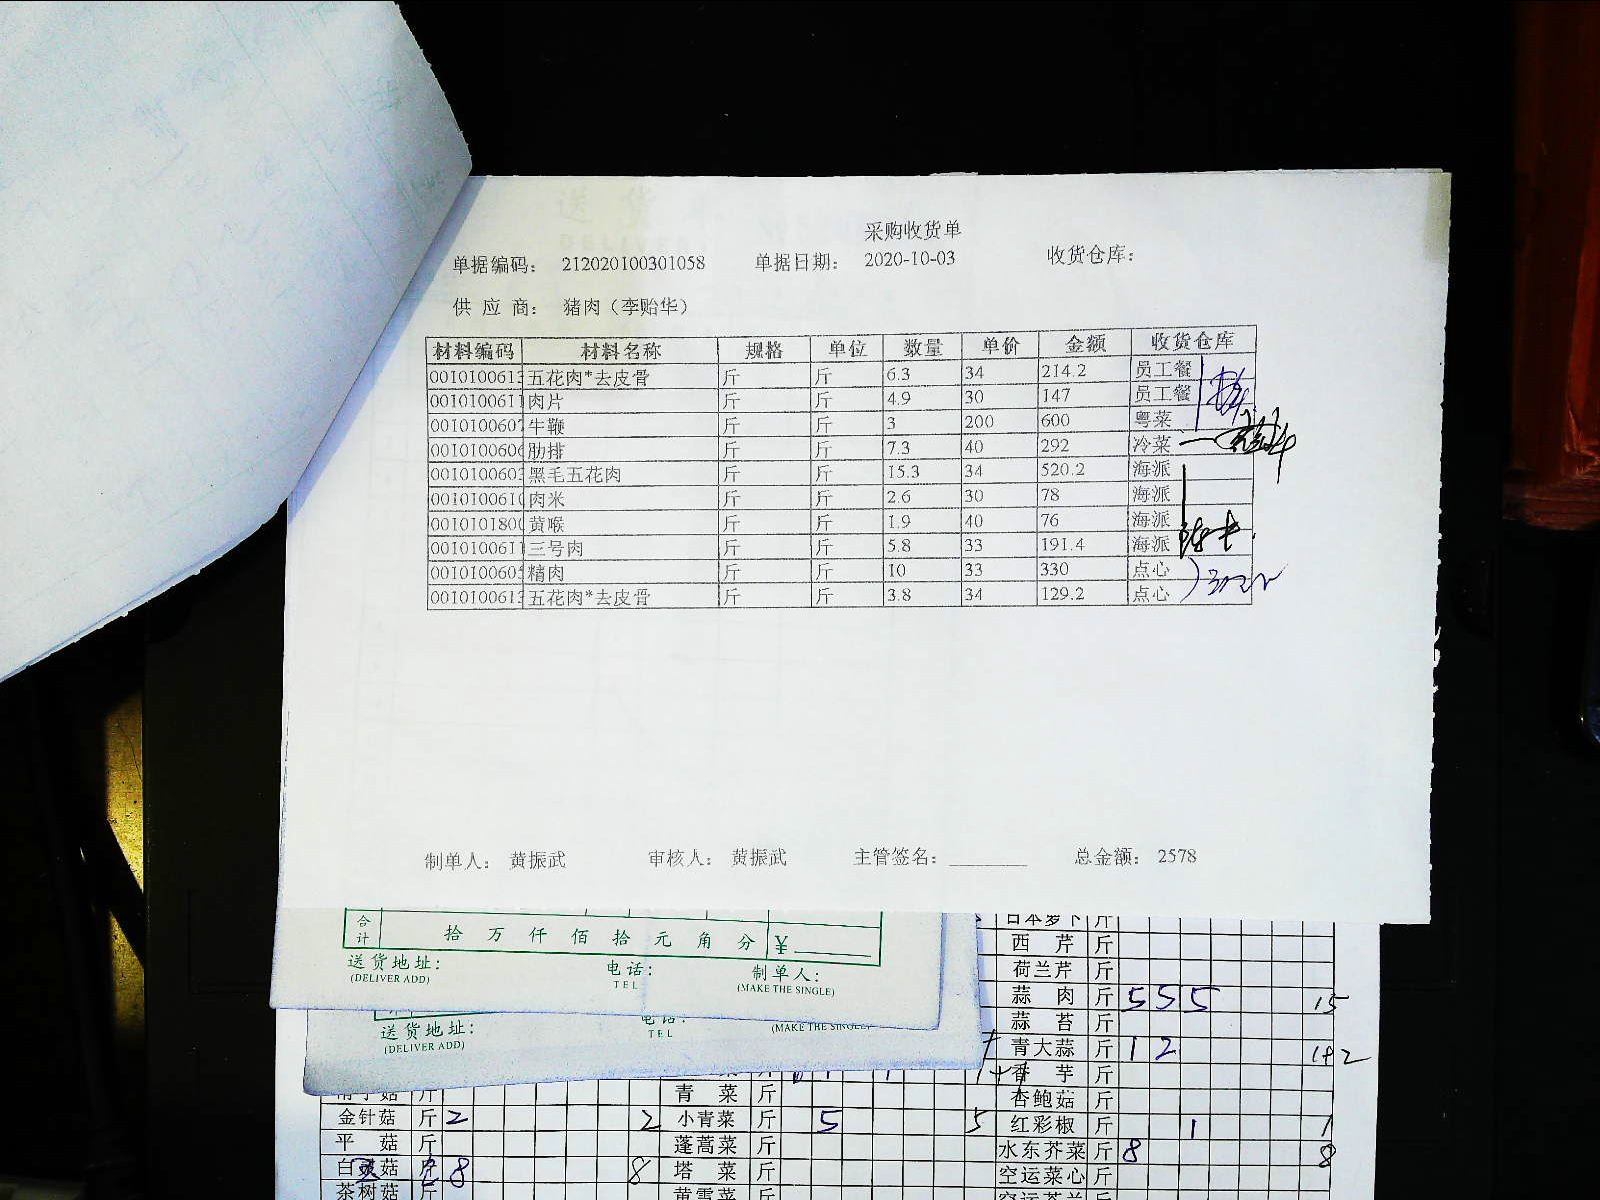 采购收货单
单据编码： 212020100301058 单据日期： 2020-10-03 收货仓库：
供 应 商： 猪肉（李贻华）
材料编码 材料名称 规格 单位 数量 单价 金额 收货仓库
0010100613 五花肉*去皮骨 斤 斤 6.3 34 214.2 员工餐
0010100611 肉片 斤 斤 4.9 30 147 员工餐
0010100607 牛鞭 斤 斤 3 200 600 粤菜
0010100606 肋排 斤 斤 7.3 40 292 冷菜
0010100603 黑毛五花肉 斤 斤 15.3 34 520.2 海派
0010100610 肉米 斤 斤 2.6 30 78 海派
0010101800 黄喉 斤 斤 1.9 40 76 海派
0010100611 三号肉 斤 斤 5.8 33 191.4 海派
0010100605 精肉 斤 斤 10 33 330 点心
0010100613 五花肉*去皮骨 斤 斤 3.8 34 129.2 点心
制单人： 黄振武 审核人： 黄振武 主管签名： 总金额： 2578
合计 拾 万 仟 佰 拾 元 角 分 ¥
送货地址： 电话： 制单人：
(DELIVER ADD) TEL (MAKE THE SINGLE)
送货地址： 电话：
(DELIVER ADD) TEL (MAKE THE SINGLE)
日本萝卜 斤
西 芹 斤
荷兰芹 斤
蒜 肉 斤 5 5 5 15
蒜 苔 斤
青大蒜 斤 1 2 1+2
香 芋 斤
杏鲍菇 斤
青 菜 斤
金针菇 斤 2 2 小青菜 斤 5 5 红彩椒 斤 1 1
平 菇 斤 蓬蒿菜 斤 水东芥菜 斤 8 8
白灵菇 斤 8 8 塔 菜 斤 空运菜心 斤
茶树菇 斤